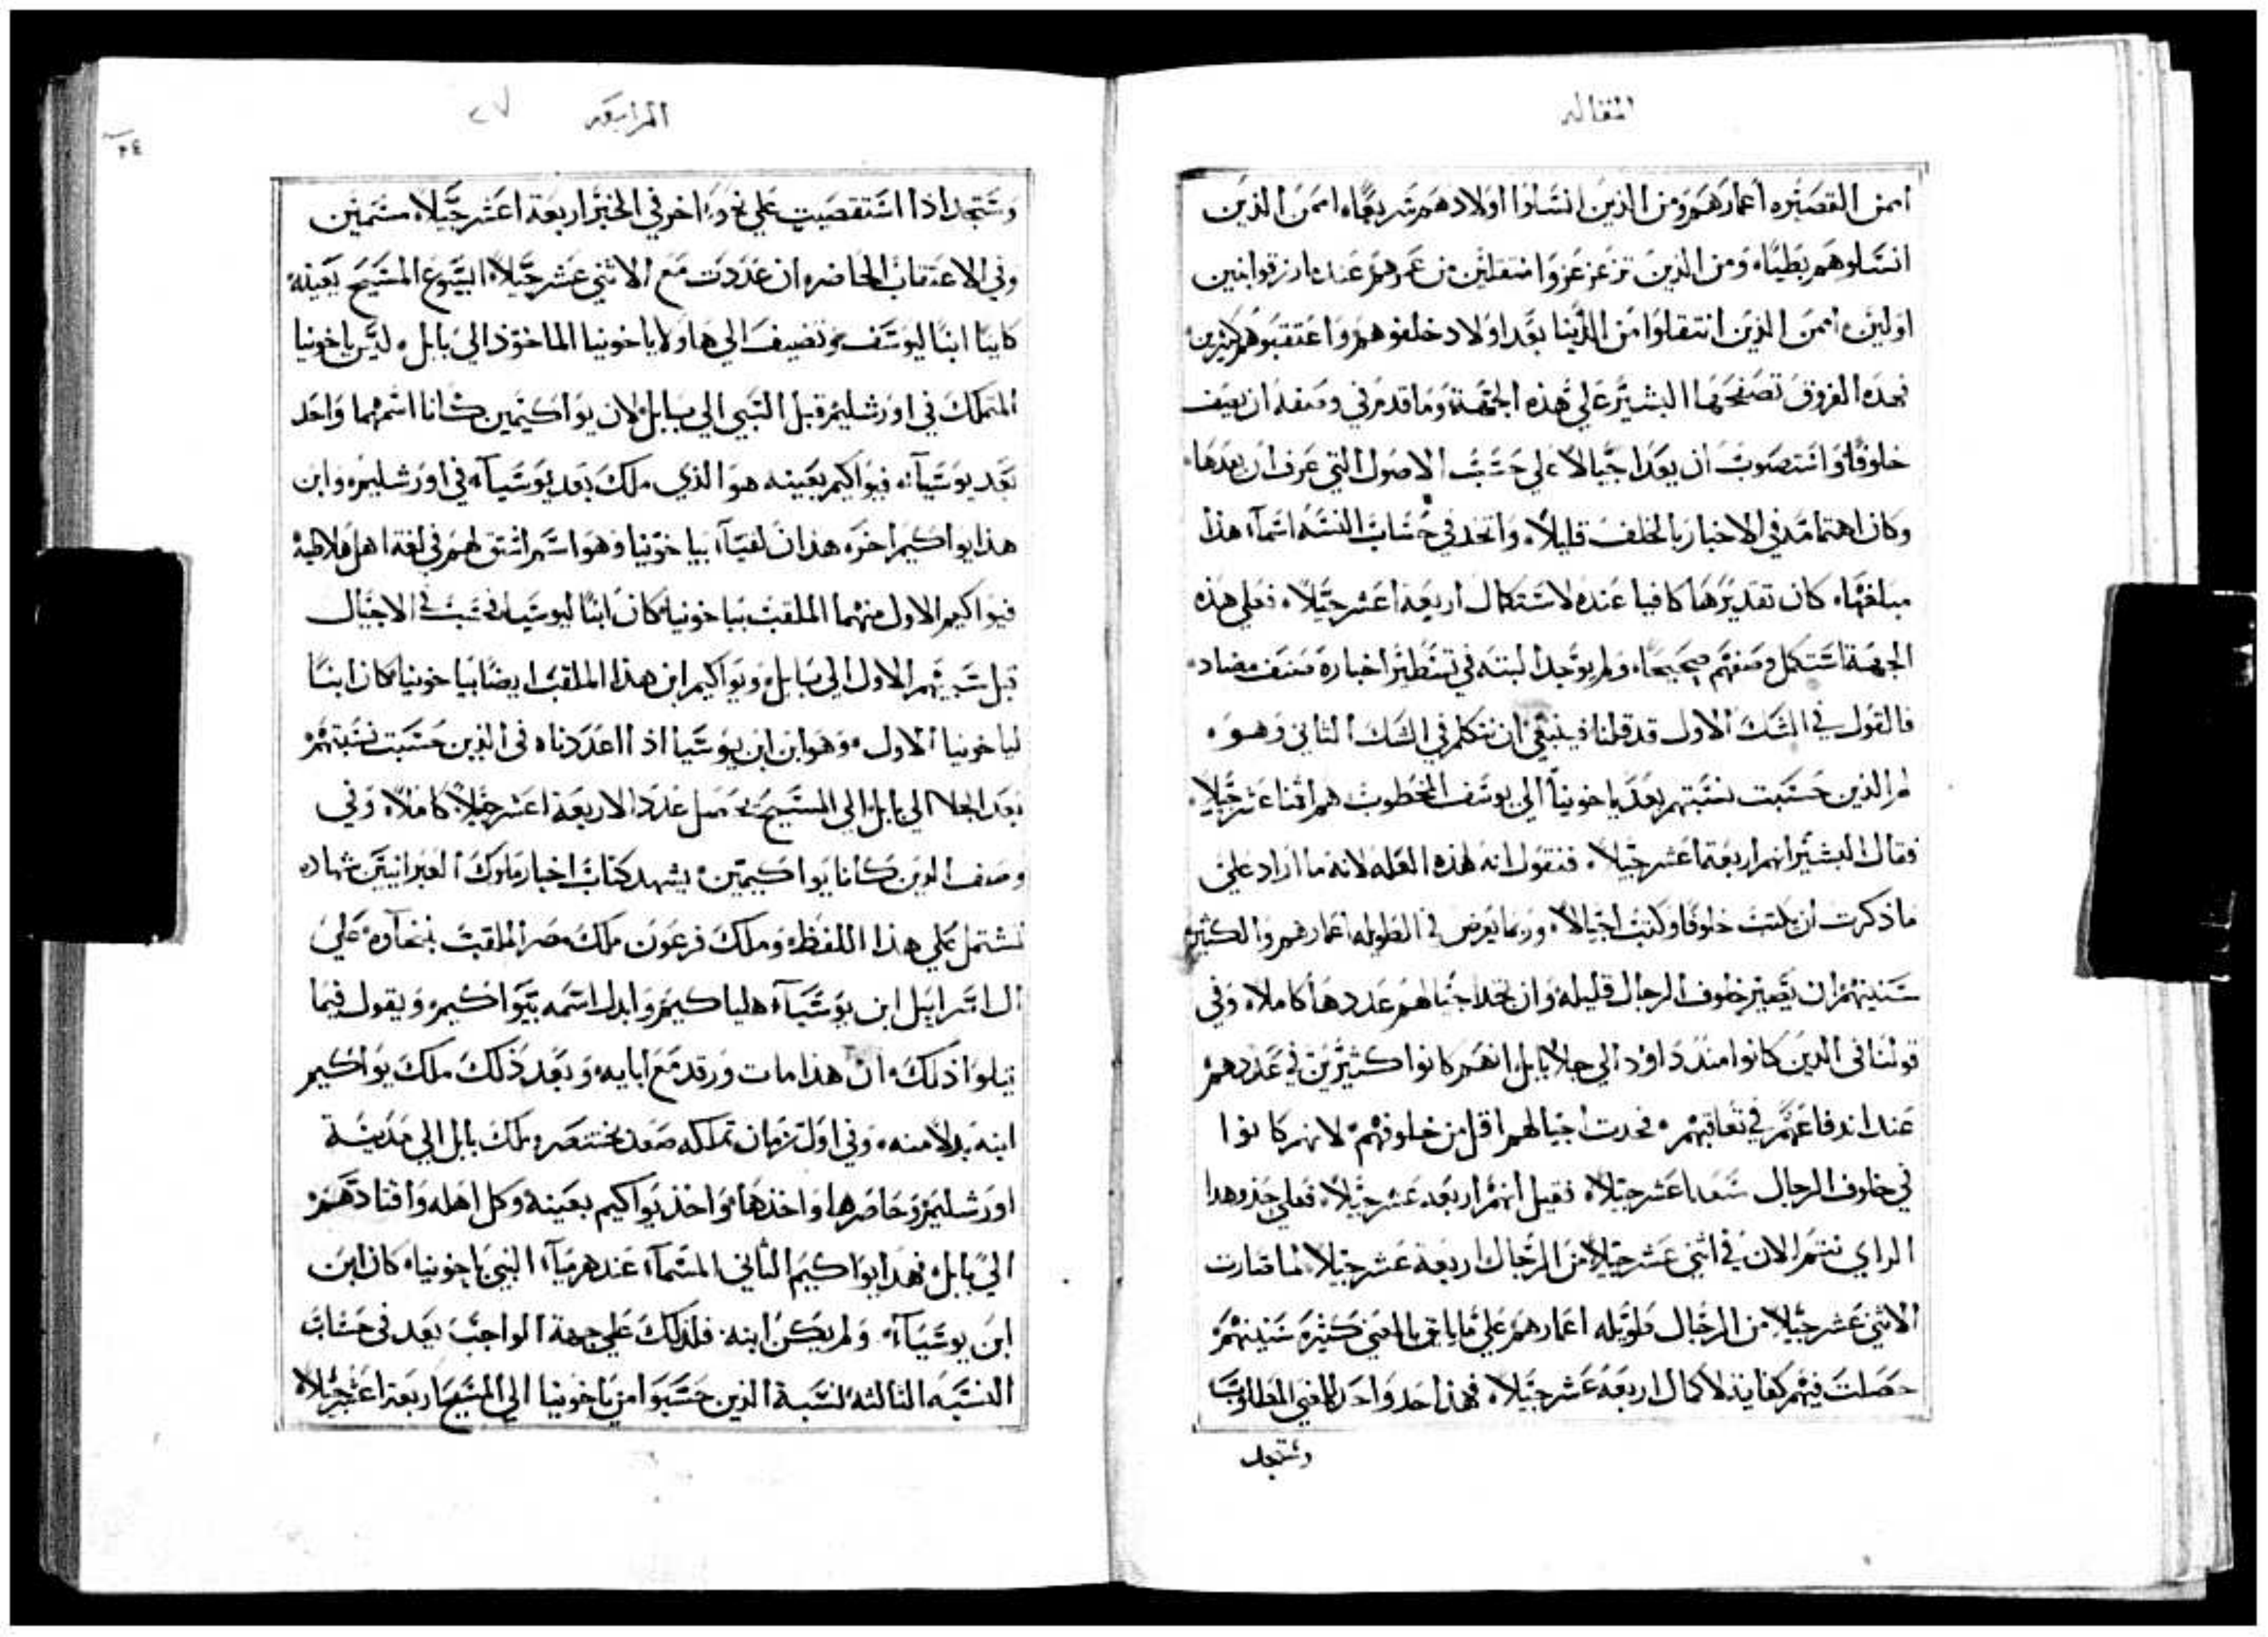 المقاله
امن القصيره اعمارهم ومن الذين انشاوا اولادهم سريعًا امن الذين
انسلوهم بطيًا ومن الذين تزعزعزوا منتقلين من عمرهم عندما رزقوا بنين
اولين امن الذين انتقلوا من الدنيا بعد اولاد خلفوهم واعتقبوهم كثيرين
فهذه الفروق تصفحها البشير علي هذه الجهة وما قدم في وصفه ان يصف
خلوفًا واستصوب ان يعد اجيالا علي حسب الاصول التي عرف ان يعدها
وكان اهتمامه في الاخبار بالخلف قليلا واتخد في حساب النسبه اسماء هذا
مبلغها كان تقديرها كافيا عنده لاستكمال اربعة اعشر جيلا فعلي هذه
الجهة استكمل وصفهم صحيحًا ولم يوجد البتة في تسطير اخباره صنف مضاد
فالقول في الشك الاول قد قلنا فينبغي ان نتكلم في الشك الثاني وهو
لم الذين حسبت نسبتهم بعد ياخونيا الي يوسف الخطوب هم اثنا عشر جيلا
فقال البشير انهم اربعة اعشر جيلا فنقول انه لهذه العله لانه ما اراد علي
ما ذكرت ان يكتب خلوفا وكتب اجيالا وربما يعرض في الطويله اعمارهم والكثيره
سنينهم ان تصير خلوف الرجال قليله وان تجد اجيالهم عددها كاملا وفي
قولنا في الدين كانوا مند داود الي جلا بابل انهم كانوا كثيرين في عددهم
عند اندفاعهم في تعاقبهم فحدت اجيالهم اقل من خلوفهم لانهم كانوا
في خلوف الرجال سبعة اعشر جيلا فقيل انهم اربعه عشر جيلا فعلي حذو هدا
الراي نتمم الان في اثني عشر جيلا من الرجال اربعة عشر جيلا لما صارت
الاثني عشر جيلا من الرجال طويله اعمارهم علي ما يليق بالمعني كثيرة سنينهم
حصلت فيهم كفايه لاكمال اربعه عشر جيلا فهذا حد واحد للمعني المطلوب
وستجد
الرابعه
٢٧
٢٤
وستجد اذا استقصيت علي نحو اخر في الخبر اربعة اعشر جيلا مسمين
وفي الاعتقاب الحاضره ان عددت مع الاثني عشر جيلا ايسوع المسيح بعينه
كاينا ابنا ليوسف وتضيف الي هاولا ياخونيا الماخوذ الي بابل ليس ياخونيا
المتملك في اورشليم قبل السبي الي بابل لان يواكيمين كانا اسمهما واحد
بعد يوسياه فيواكيم بعينه هو الذي ملك بعد يوسياه في اورشليم وابن
هذا يواكيم اخر هذان لقبا بياخونيا وهو اسم اشتق لهم في لغة اهل فلاهية
فيواكيم الاول منهما الملقب بياخونيا كان ابنا ليوسياه فحسب في الاجيال
قبل سبيهم الاول الي بابل ويواكيم ابن هذا الملقب ايضًا بياخونيا كان ابنا
لياخونيا الاول وهو ابن ابن يوسيا اذا اعددناه في الذين حسبت نسبتهم
بعد الجلا الي بابل الي المسيح حصل عدد الاربعة اعشر جيلا كاملا وفي
وصف الدين كانا يواكيمين يشهد كتاب اخبار ملوك العبرانيين شهاده
تشتمل علي هذا اللفظ وملك فرعون ملك مصر الملقب بنحاوه علي
ال اسراييل ابن يوسياء هلياكيم وابدل اسمه بيواكيم ويقول فيما
يتلوا ذلك ان هذا مات ورقد مع ابايه وبعد ذلك ملك يواكيم
ابنه بدلا منه وفي اول زمان تملكه صعد بختنصر ملك بابل الي مدينة
اورشليم وحاصرها واخذها واخذ يواكيم بعينه وكل اهله واقتادهم
الي بابل فهدا يواكيم الثاني المسما عند هرميا النبي ياخونيا كان ابن
ابن يوسياء ولم يكن ابنه فلذلك علي جهة الواجب يعد في حساب
النسبه الثالثه لنسبة الذين حسبوا من ياخونيا الي المسيح اربعة اعشر جيلا